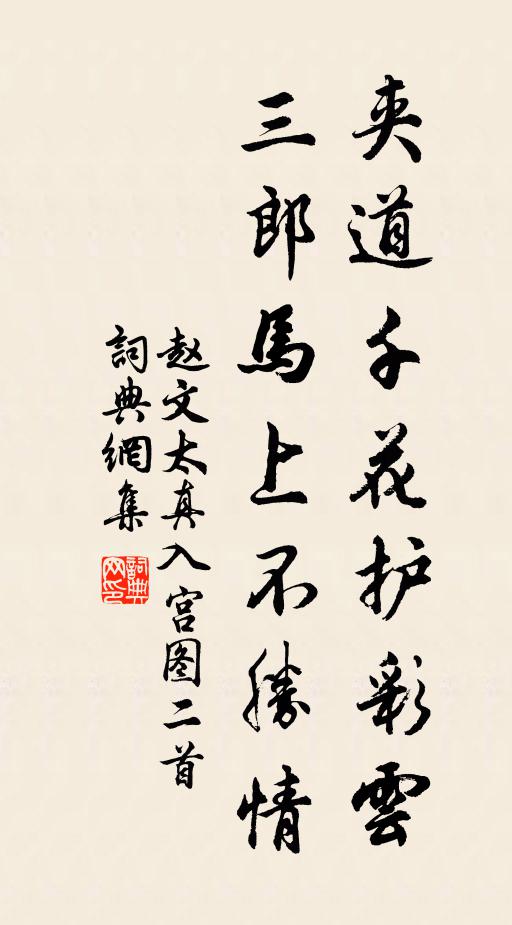 夹道千花护彩雲
三郎馬上不勝情
赵文太真入宫图二首
詞典網集
詞典网印